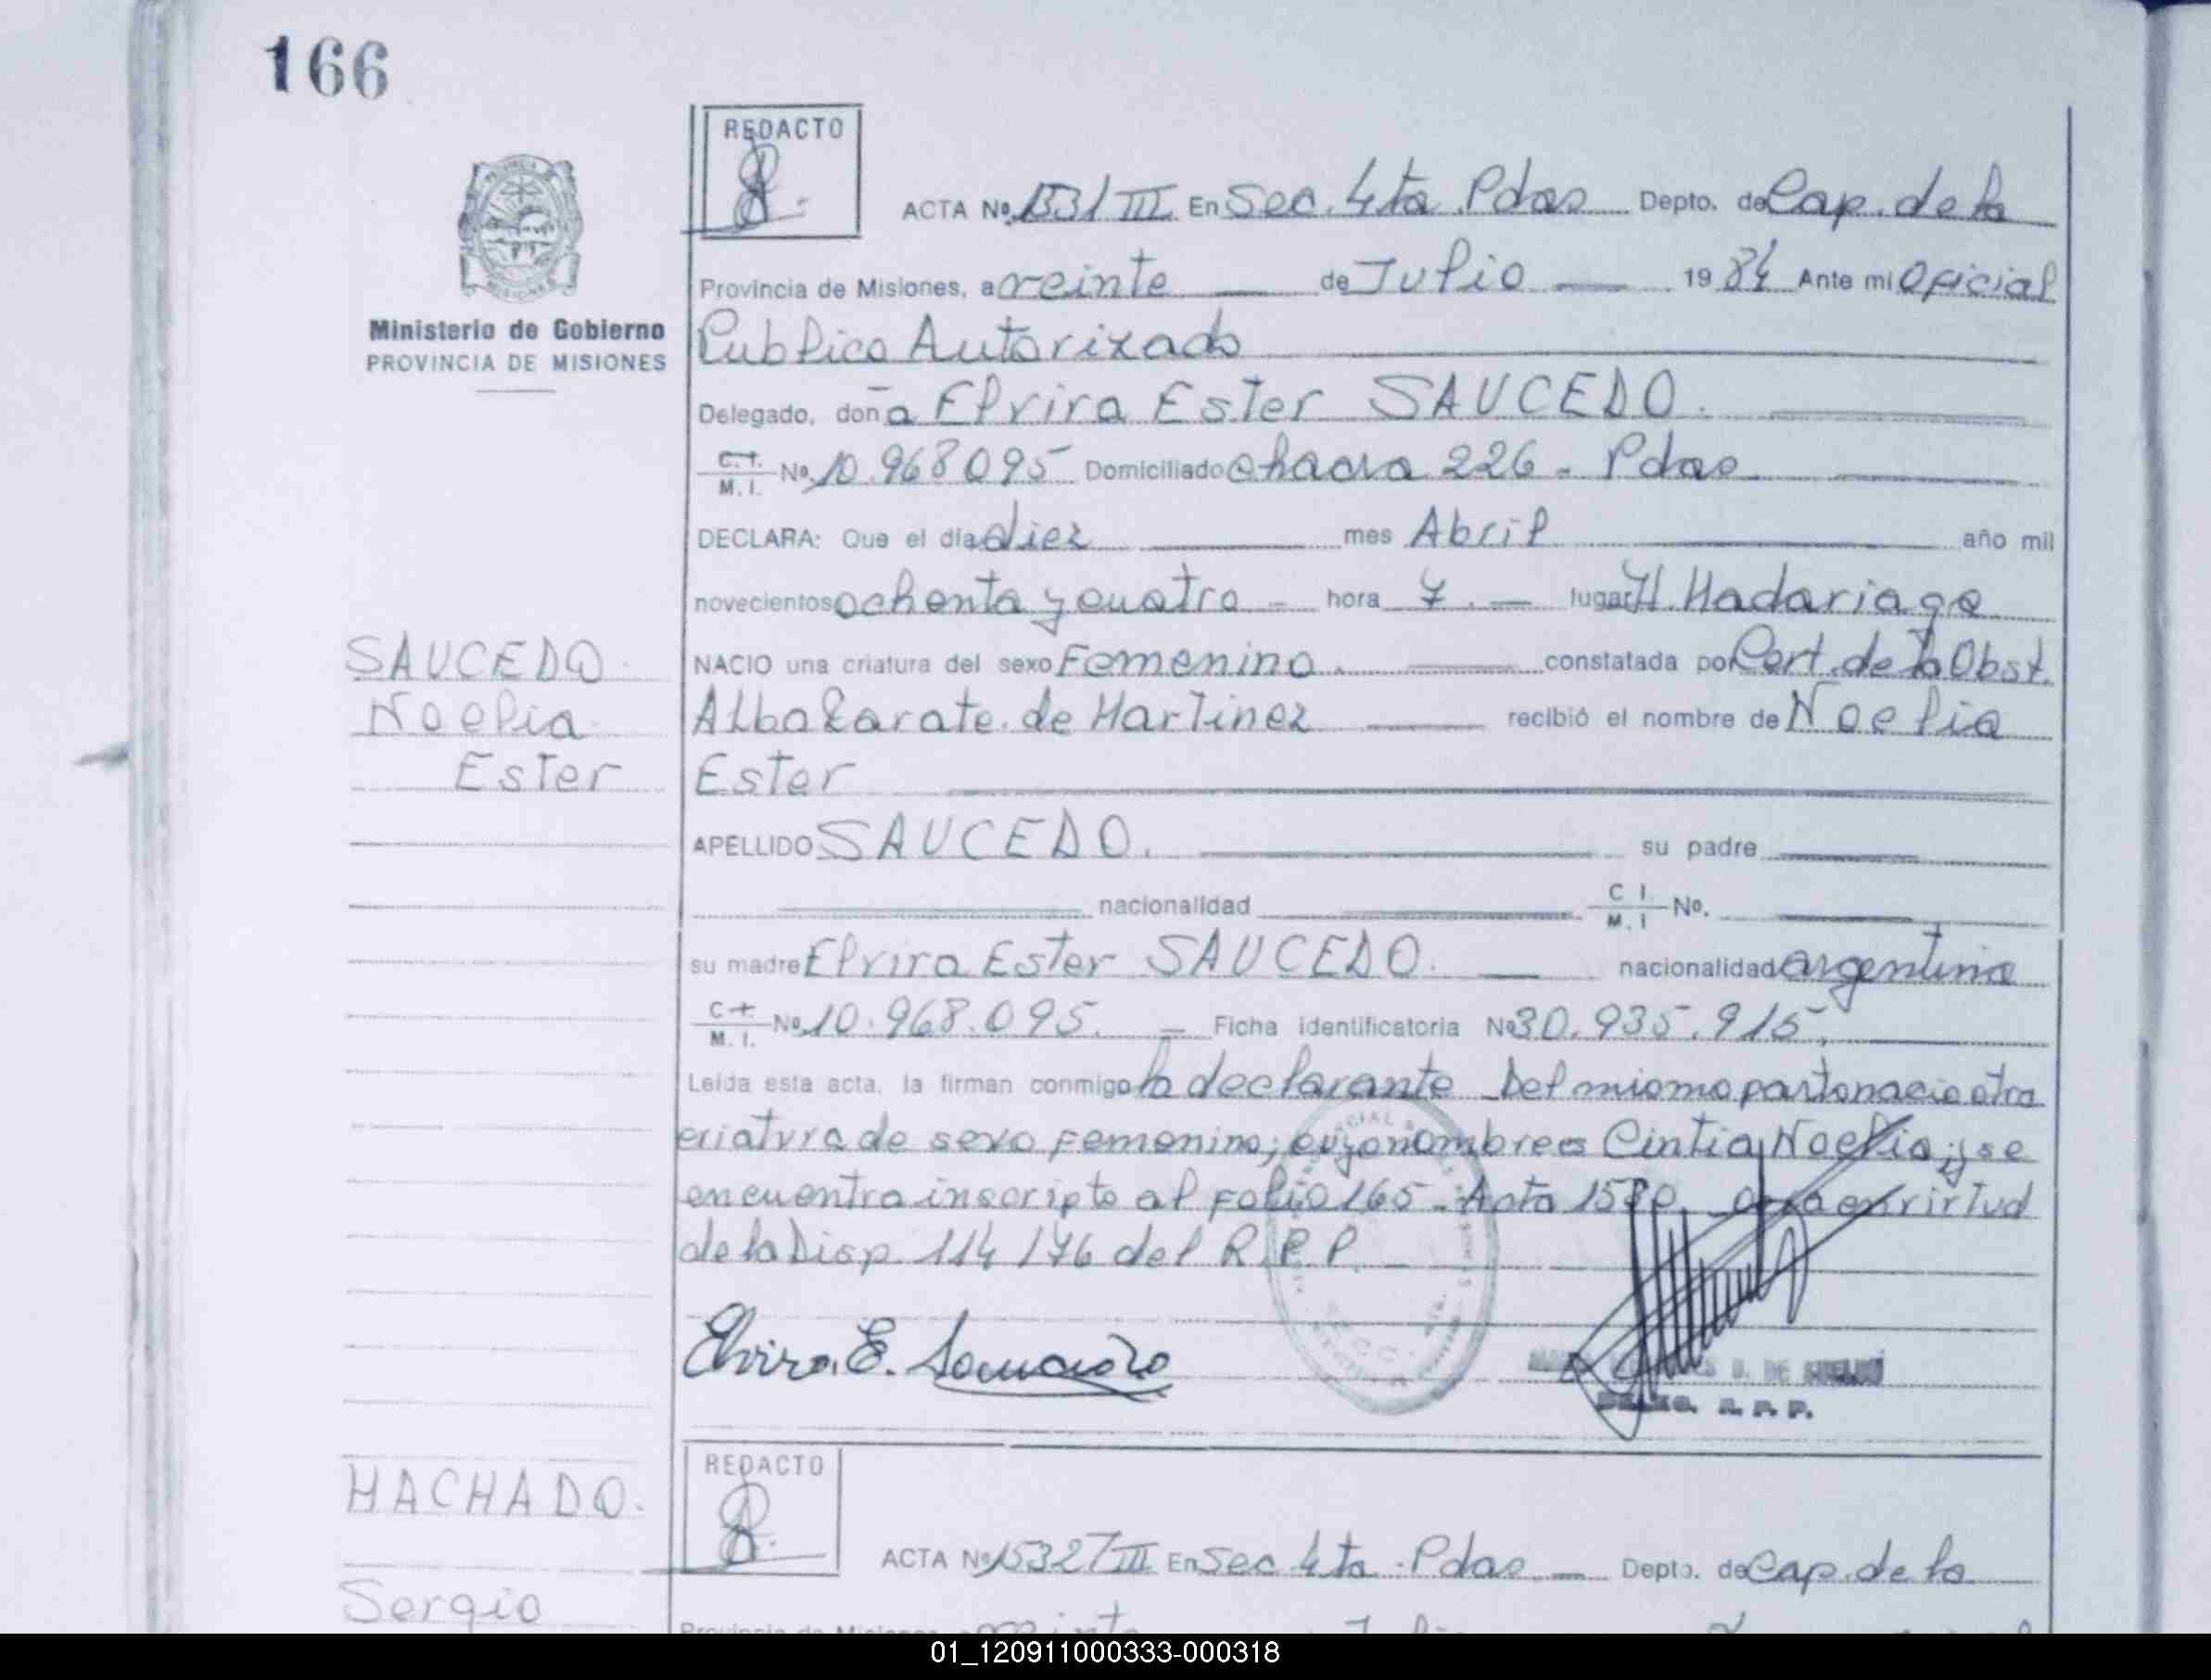 166
REDACTO
ACTA Nº 1531 III En Sec. 4ta Pdas Depto. de Cap. de la
Provincia de Misiones, a veinte de Julio 1984 Ante mi Oficial
Ministerio de Gobierno
PROVINCIA DE MISIONES
Publico Autorizado
Delegado, doña Elvira Ester SAUCEDO.
C.I. M.I. Nº 10.968095 Domiciliado chacra 226 - Pdas
DECLARA: Que el día diez mes Abril año mil
novecientos ochenta y cuatro - hora 7. lugar H. Madariaga
SAUCEDO
Noelia
Ester
NACIO una criatura del sexo Femenino. constatada por Cert. de la Obst.
Alba Zarate de Martinez recibió el nombre de Noelia
Ester
APELLIDO SAUCEDO. su padre
nacionalidad C I. M. I Nº.
su madre Elvira Ester SAUCEDO. nacionalidad argentina
C I. M. I. Nº 10.968.095. Ficha identificatoria Nº 30.935.915,
Leída esta acta, la firman conmigo la declarante Del mismo parto nacio otra
criatura de sexo femenino; cuyo nombre es Cintia Noelia; y se
encuentra inscripto al folio 165 - Acta virtud
de la Disp 114/76 del R.P.P.
Elvira E. Saucedo
DE
R. P. P.
HACHADO.
Sergio
REDACTO
ACTA Nº 1532 III En Sec 4ta Pdas Depto. de Cap. de la
01_120911000333-000318